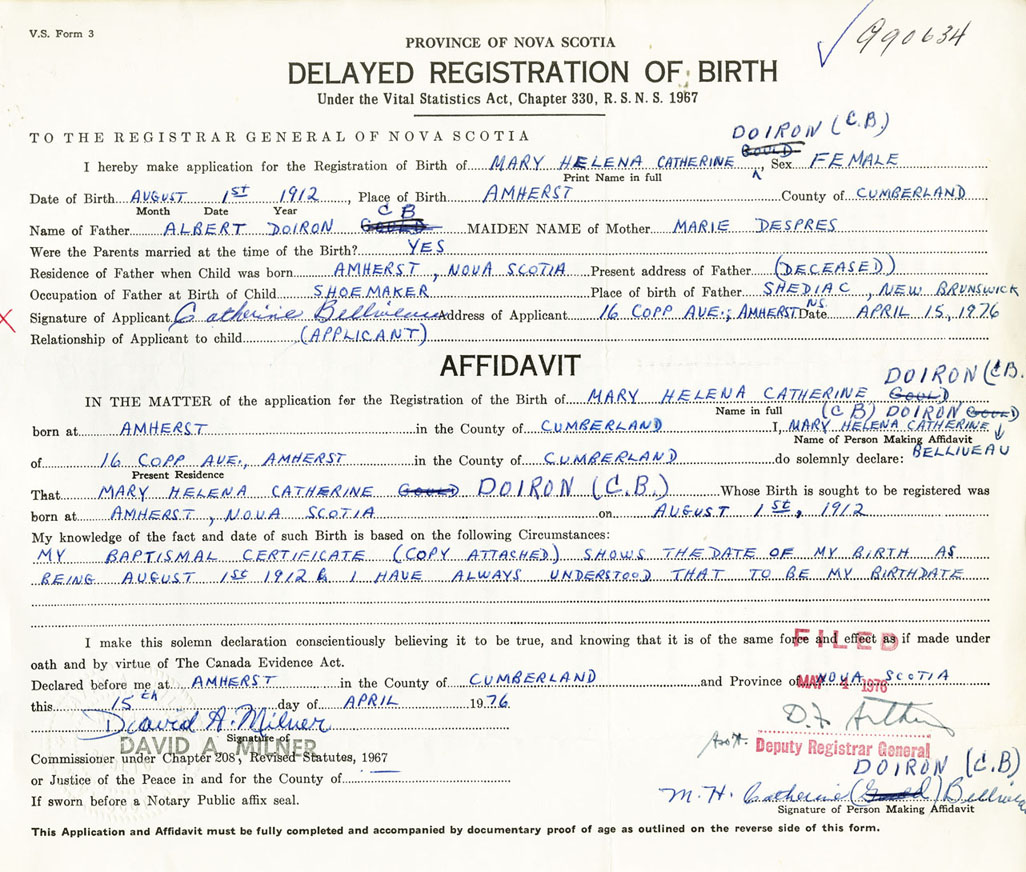 V.S. Form 3
990634
PROVINCE OF NOVA SCOTIA
DELAYED REGISTRATION OF BIRTH
Under the Vital Statistics Act, Chapter 330, R.S.N.S. 1967
TO THE REGISTRAR GENERAL OF NOVA SCOTIA
DOIRON (C.B)
I hereby make application for the Registration of Birth of MARY HELENA CATHERINE GOULD, Sex FEMALE
Print Name in full
Date of Birth AUGUST 1st 1912, Place of Birth AMHERST County of CUMBERLAND
Month Date Year
C B
Name of Father ALBERT DOIRON GOULD MAIDEN NAME of Mother MARIE DESPRES
Were the Parents married at the time of the Birth? YES
Residence of Father when Child was born AMHERST, NOVA SCOTIA Present address of Father (DECEASED)
Occupation of Father at Birth of Child SHOEMAKER Place of birth of Father SHEDIAC, NEW BRUNSWICK
X Signature of Applicant Catherine Belliveau Address of Applicant 16 COPP AVE., AMHERST NS. Date APRIL 15, 1976
Relationship of Applicant to child (APPLICANT)
AFFIDAVIT
DOIRON (C.B.
IN THE MATTER of the application for the Registration of the Birth of MARY HELENA CATHERINE GOULD
Name in full
(C B) DOIRON GOULD
born at AMHERST in the County of CUMBERLAND I, MARY HELENA CATHERINE
Name of Person Making Affidavit
BELLIVEAU
of 16 COPP AVE., AMHERST in the County of CUMBERLAND do solemnly declare:
Present Residence
That MARY HELENA CATHERINE GOULD DOIRON (C.B.) Whose Birth is sought to be registered was
born at AMHERST, NOVA SCOTIA on AUGUST 1st, 1912
My knowledge of the fact and date of such Birth is based on the following Circumstances:
MY BAPTISMAL CERTIFICATE (COPY ATTACHED) SHOWS THE DATE OF MY BIRTH AS
BEING AUGUST 1st 1912 & I HAVE ALWAYS UNDERSTOOD THAT TO BE MY BIRTHDATE
I make this solemn declaration conscientiously believing it to be true, and knowing that it is of the same force and effect as if made under
FILED
oath and by virtue of The Canada Evidence Act.
Declared before me at AMHERST in the County of CUMBERLAND and Province of NOVA SCOTIA
MAY 4 1976
this 15th day of APRIL 1976
David A. Milner
Signature of
DAVID A MILNER
Asst. Deputy Registrar General
Commissioner under Chapter 208, Revised Statutes, 1967
DOIRON (C.B)
or Justice of the Peace in and for the County of
M. H. Catherine (Gould) Belliveau
If sworn before a Notary Public affix seal.
Signature of Person Making Affidavit
This Application and Affidavit must be fully completed and accompanied by documentary proof of age as outlined on the reverse side of this form.